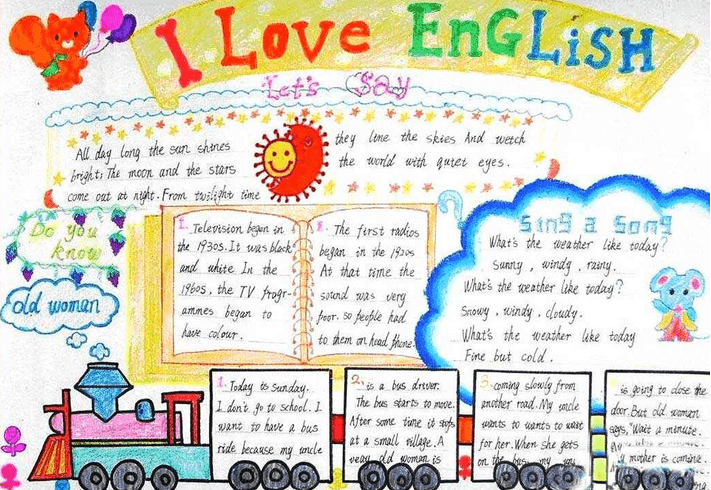 I Love EnGLiSH
Let's Say
All day long the sun shines
bright. The moon and the stars
come out at night. From twilight time
they line the skies And wetch
the world with quiet eyes.
Do you
know
1. Television began in
the 1930s. It was black
and white In the
1960s, the TV progr-
ammes began to
have colour.
The first radios
began in the 1920s
At that time the
sound was very
poor. so people had
to them on head phone
Sing a Song
What's the weather like today?
Sunny, windy, rainy.
What's the weather like today?
Snowy, windy, cloudy.
What's the weather like today
Fine but cold.
old woman
1. Today is Sunday.
I don't go to school. I
want to have a bus
ride because my uncle
2. is a bus driver.
The bus starts to move.
After some time it stops
at a small village. A
very old woman is
3. coming slowly from
another road. My uncle
wants to wants to wait
for her. When she gets
on the bus my
is going to close the
door. But old woman
says, "Wait a minute.
mother is comine.